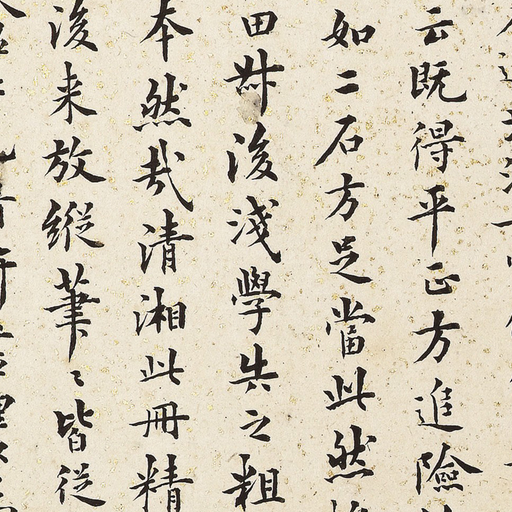 云既得平正方進險
如二石方足當此然
田叔後淺學失之粗
本然哉清湘此冊精
後来放縱筆〻皆従